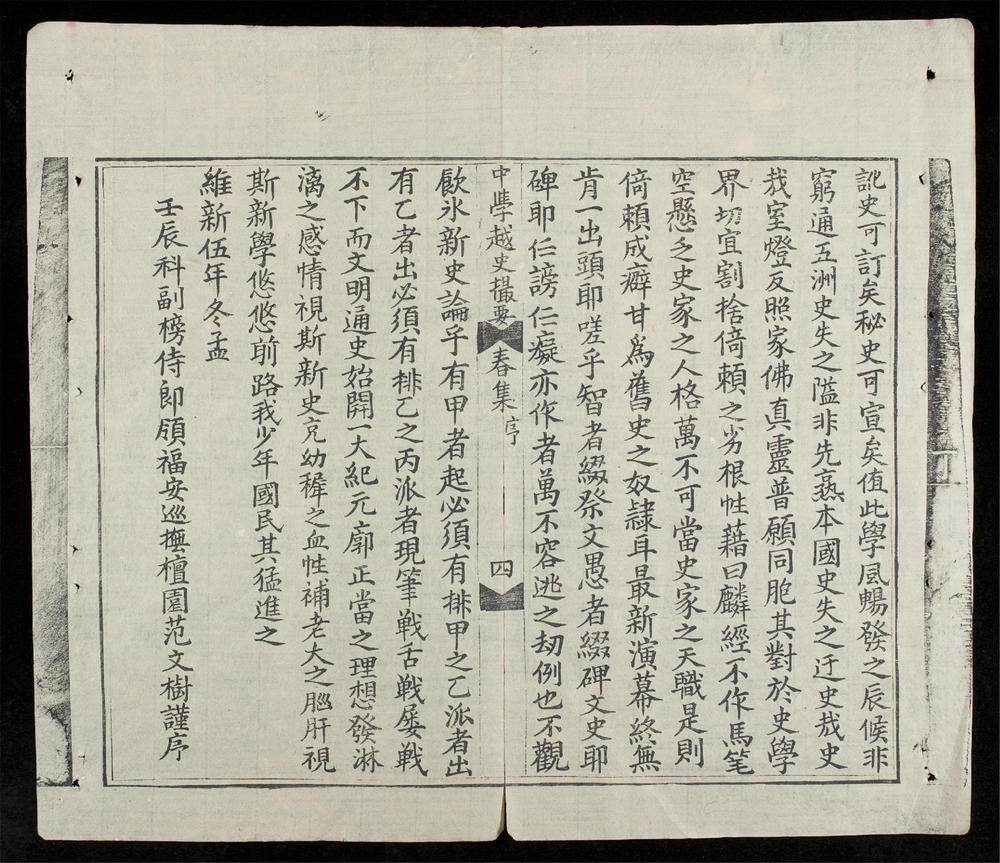 訛史可訂矣秘史可宣矣值此學風暢發之辰候非
窮通五洲史失之隘非先熟本國史失之迂史㢤史
㢤室燈反照家佛真靈普願同胞其對於史學
界切宜割捨倚頼之劣根性藉曰麟經不作馬笔
空懸乏史家之人格萬不可當史家之天職是則
倚頼成癖甘爲舊史之奴隷耳最新演幕終無
肯一出頭耶嗟乎智者綴祭文愚者綴碑文史耶
碑耶仁謗仁癡亦作者萬不容逃之刧例也不觀
中學越史撮要 春集序 四
飲氷新史論乎有甲者起必須有排甲之乙派者出
有乙者出必須有排乙之丙派者現筆戦舌戦屡戦
不下而文明通史始開一大紀元廓正當之理想發淋
漓之感情視斯新史充幼穉之血性補老大之腦肝視
斯新學悠悠前路我少年國民其猛進之
維新伍年冬孟
壬辰科副榜侍郎領福安巡撫檀園范文樹謹序